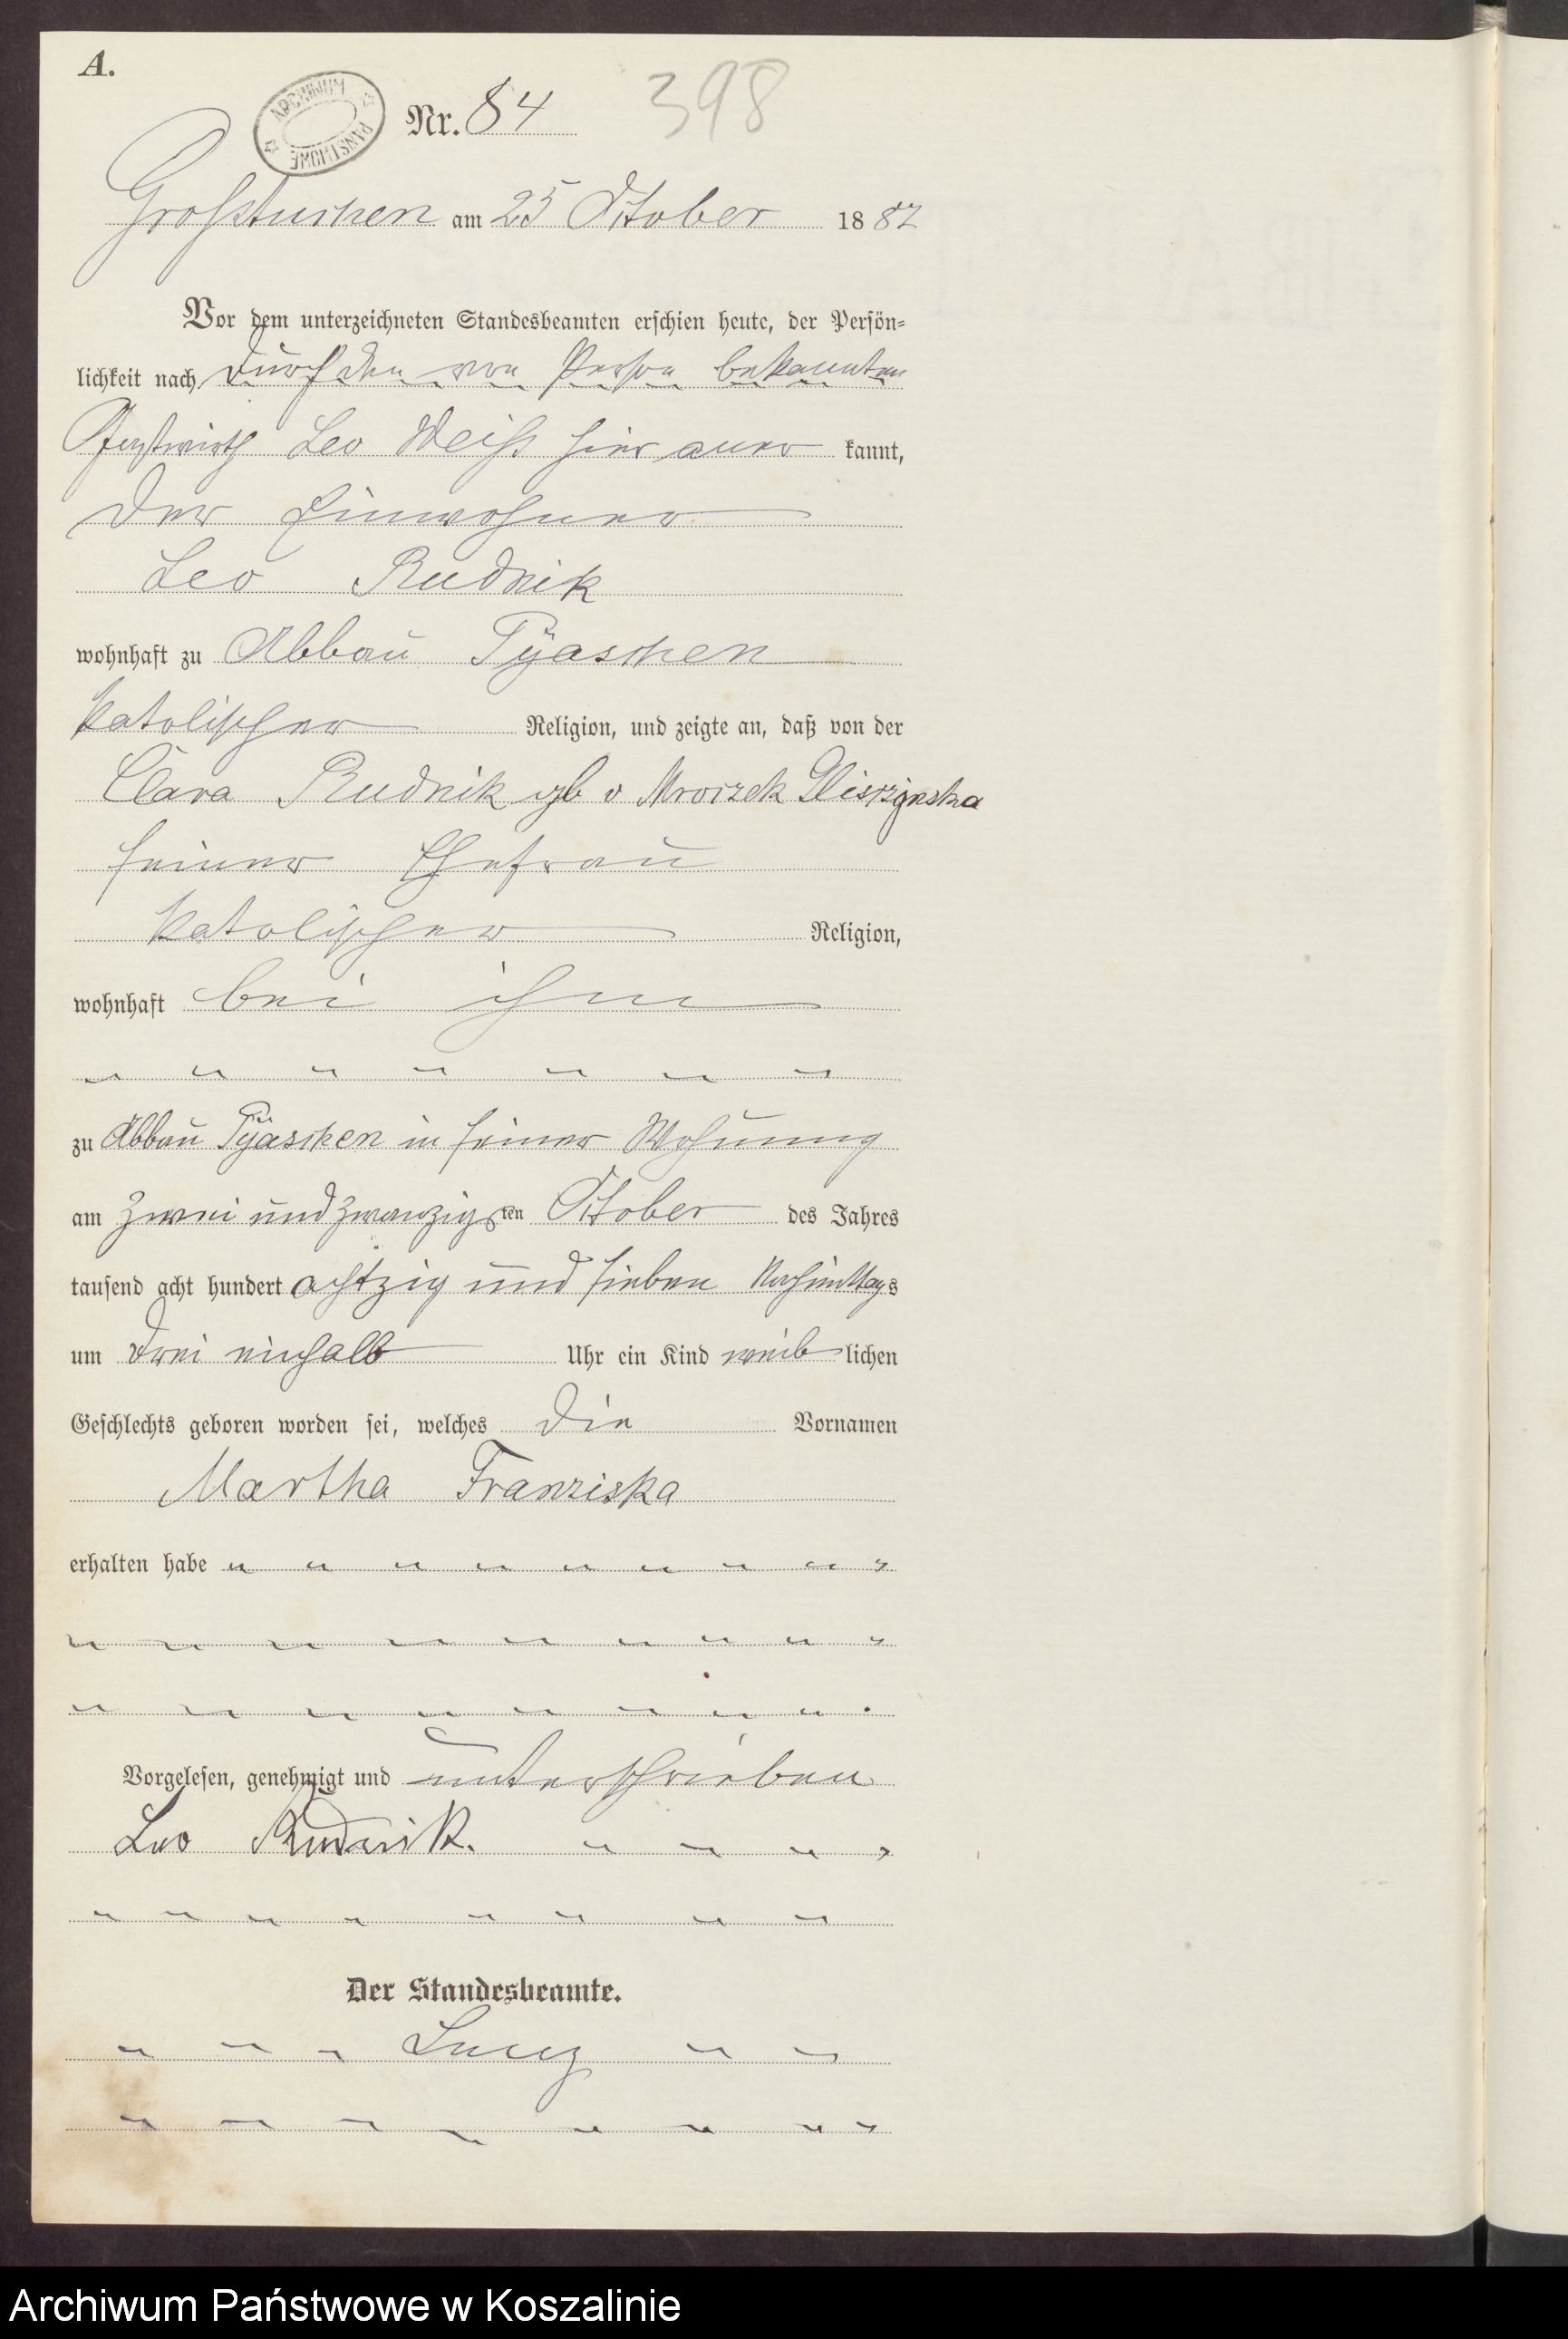 A.
ARCHIWUM PAŃSTWOWE
Nr. 84 398
Großtuchen am 25 October 1887
Vor dem unterzeichneten Standesbeamten erschien heute, der Persön-
lichkeit nach durch den von Person bekannten
Gastwirth Leo Weiß hier aner kannt,
der Einwohner
Leo Rudnik
wohnhaft zu Abbau Pÿaschen
katolischer Religion, und zeigte an, daß von der
Clara Rudnik geb v Mroczek Gliszczynska
seiner Ehefrau
katolischer Religion,
wohnhaft bei ihm
zu Abbau Pÿaschen in seiner Wohnung
am zwei und zwanzigsten October des Jahres
tausend acht hundert achtzig und sieben Nachmittags
um drei einhalb Uhr ein Kind weib lichen
Geschlechts geboren worden sei, welches die Vornamen
Martha Franziska
erhalten habe
Vorgelesen, genehmigt und unterschrieben
Leo Rudnik.
Der Standesbeamte.
Archiwum Państwowe w Koszalinie